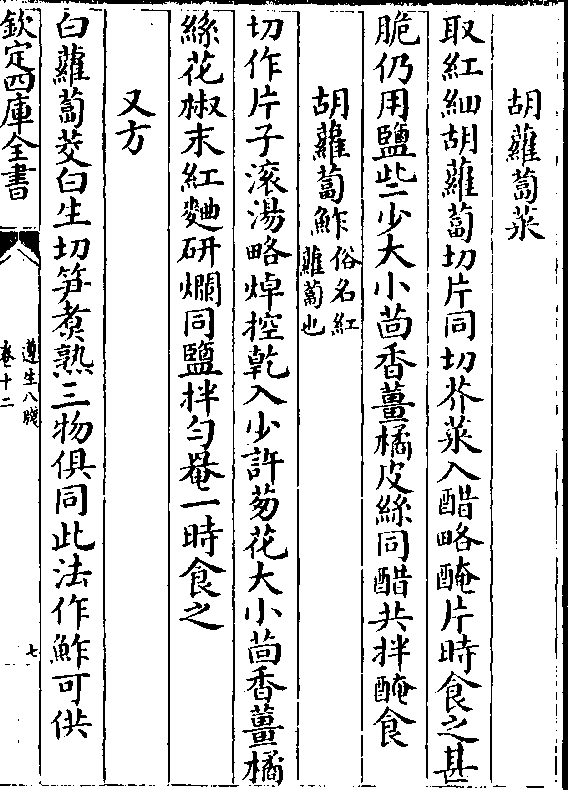 胡蘿蔔菜
取紅細胡蘿蔔切片同切芥菜入醋略醃片時食之甚
脆仍用鹽些少大小茴香薑橘皮絲同醋共拌醃食
胡蘿蔔鮓俗名紅
蘿蔔也
切作片子滚湯略焯控乾入少許葱花大小茴香薑橘
絲花椒末紅麯研爛同鹽拌勻罨一時食之
又方
白蘿蔔茭白生切笋煮熟三物俱同此法作鮓可供
欽定四庫全書
遵生八牋
卷十二
七